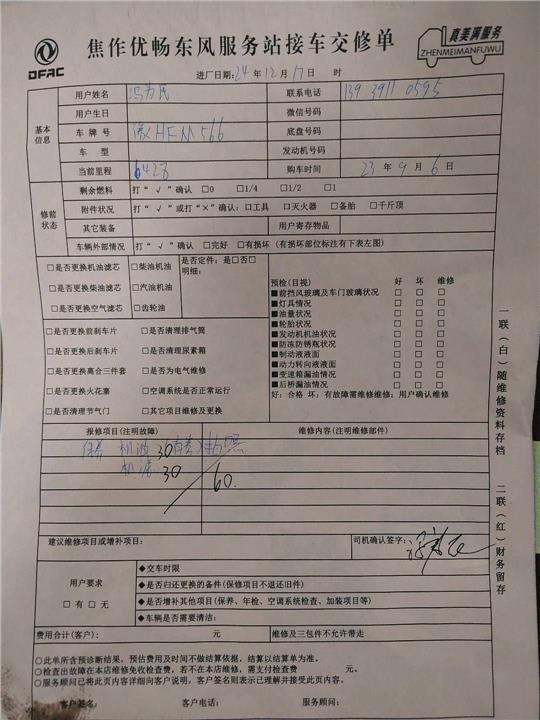 DFAC
焦作优畅东风服务站接车交修单
真美满服务
ZHENMEIMANFUWU
进厂日期:24年12月17日 时
基本信息
用户姓名
联系电话 139 3911 0595
用户生日
微信号码
车牌号 豫HFN566
底盘号码
车型
发动机号码
当前里程 6428
购车时间 23年9月6日
修前状态
剩余燃料 打“√”确认 □0 □1/4 □1/2 □1
附件状况 打“√”或打“×”确认:□工具 □灭火器 □备胎 □千斤顶
其它装备
用户寄存物品
车辆外部情况 打“√”确认 □完好 □有损坏(有损坏部位标注有下表左图)
□是否更换机油滤芯 □柴油机油 是否定件:是□否□
明细:
□是否更换柴油滤芯 □汽油机油
□是否更换空气滤芯 □齿轮油
□是否更换前刹车片 □是否清理排气筒
□是否更换后刹车片 □是否清理尿素箱
□是否更换离合三件套 □是否为电气维修
□是否更换火花塞 □空调系统是否正常运行
□是否清理节气门 □其它项目维修及更换
预检(目视) 好 坏 维修
■前挡风玻璃及车门玻璃状况 □ □ □
■灯具情况 □ □ □
■油量状况 □ □ □
■轮胎状况 □ □ □
■发动机机油状况 □ □ □
■防冻防锈瓶状况 □ □ □
■制动液液面 □ □ □
■动力转向液液面 □ □ □
■变速箱漏油情况 □ □ □
■后桥漏油情况 □ □ □
好:合格 坏:有故障需维修维修:用户确认维修
报修项目(注明故障)
维修内容(注明维修部件)
保养 机油30(自带)
机滤30
60.
建议维修项目或增补项目:
司机确认签字:
用户要求
□有□无
◆交车时限
◆是否归还更换的备件(保修项目不退还旧件)
◆是否增补其他项目(保养、年检、空调系统检查、加装项目等)
◆车辆是否需要清洁:
费用合计(客户): 元
维修及三包件不允许带走
○此单所含预诊断结果,预估费用及时间不做结算依据,结算以结算单为准。
○检查出故障在本店维修免收检查费,若不在本店维修,需支付检查费 元。
○服务顾问已将此页内容详细向客户说明,客户签名则表示已理解并接受此页内容。
客户签名: 客户电话: 服务顾问:
一联(白)随维修资料存档 二联(红)财务留存